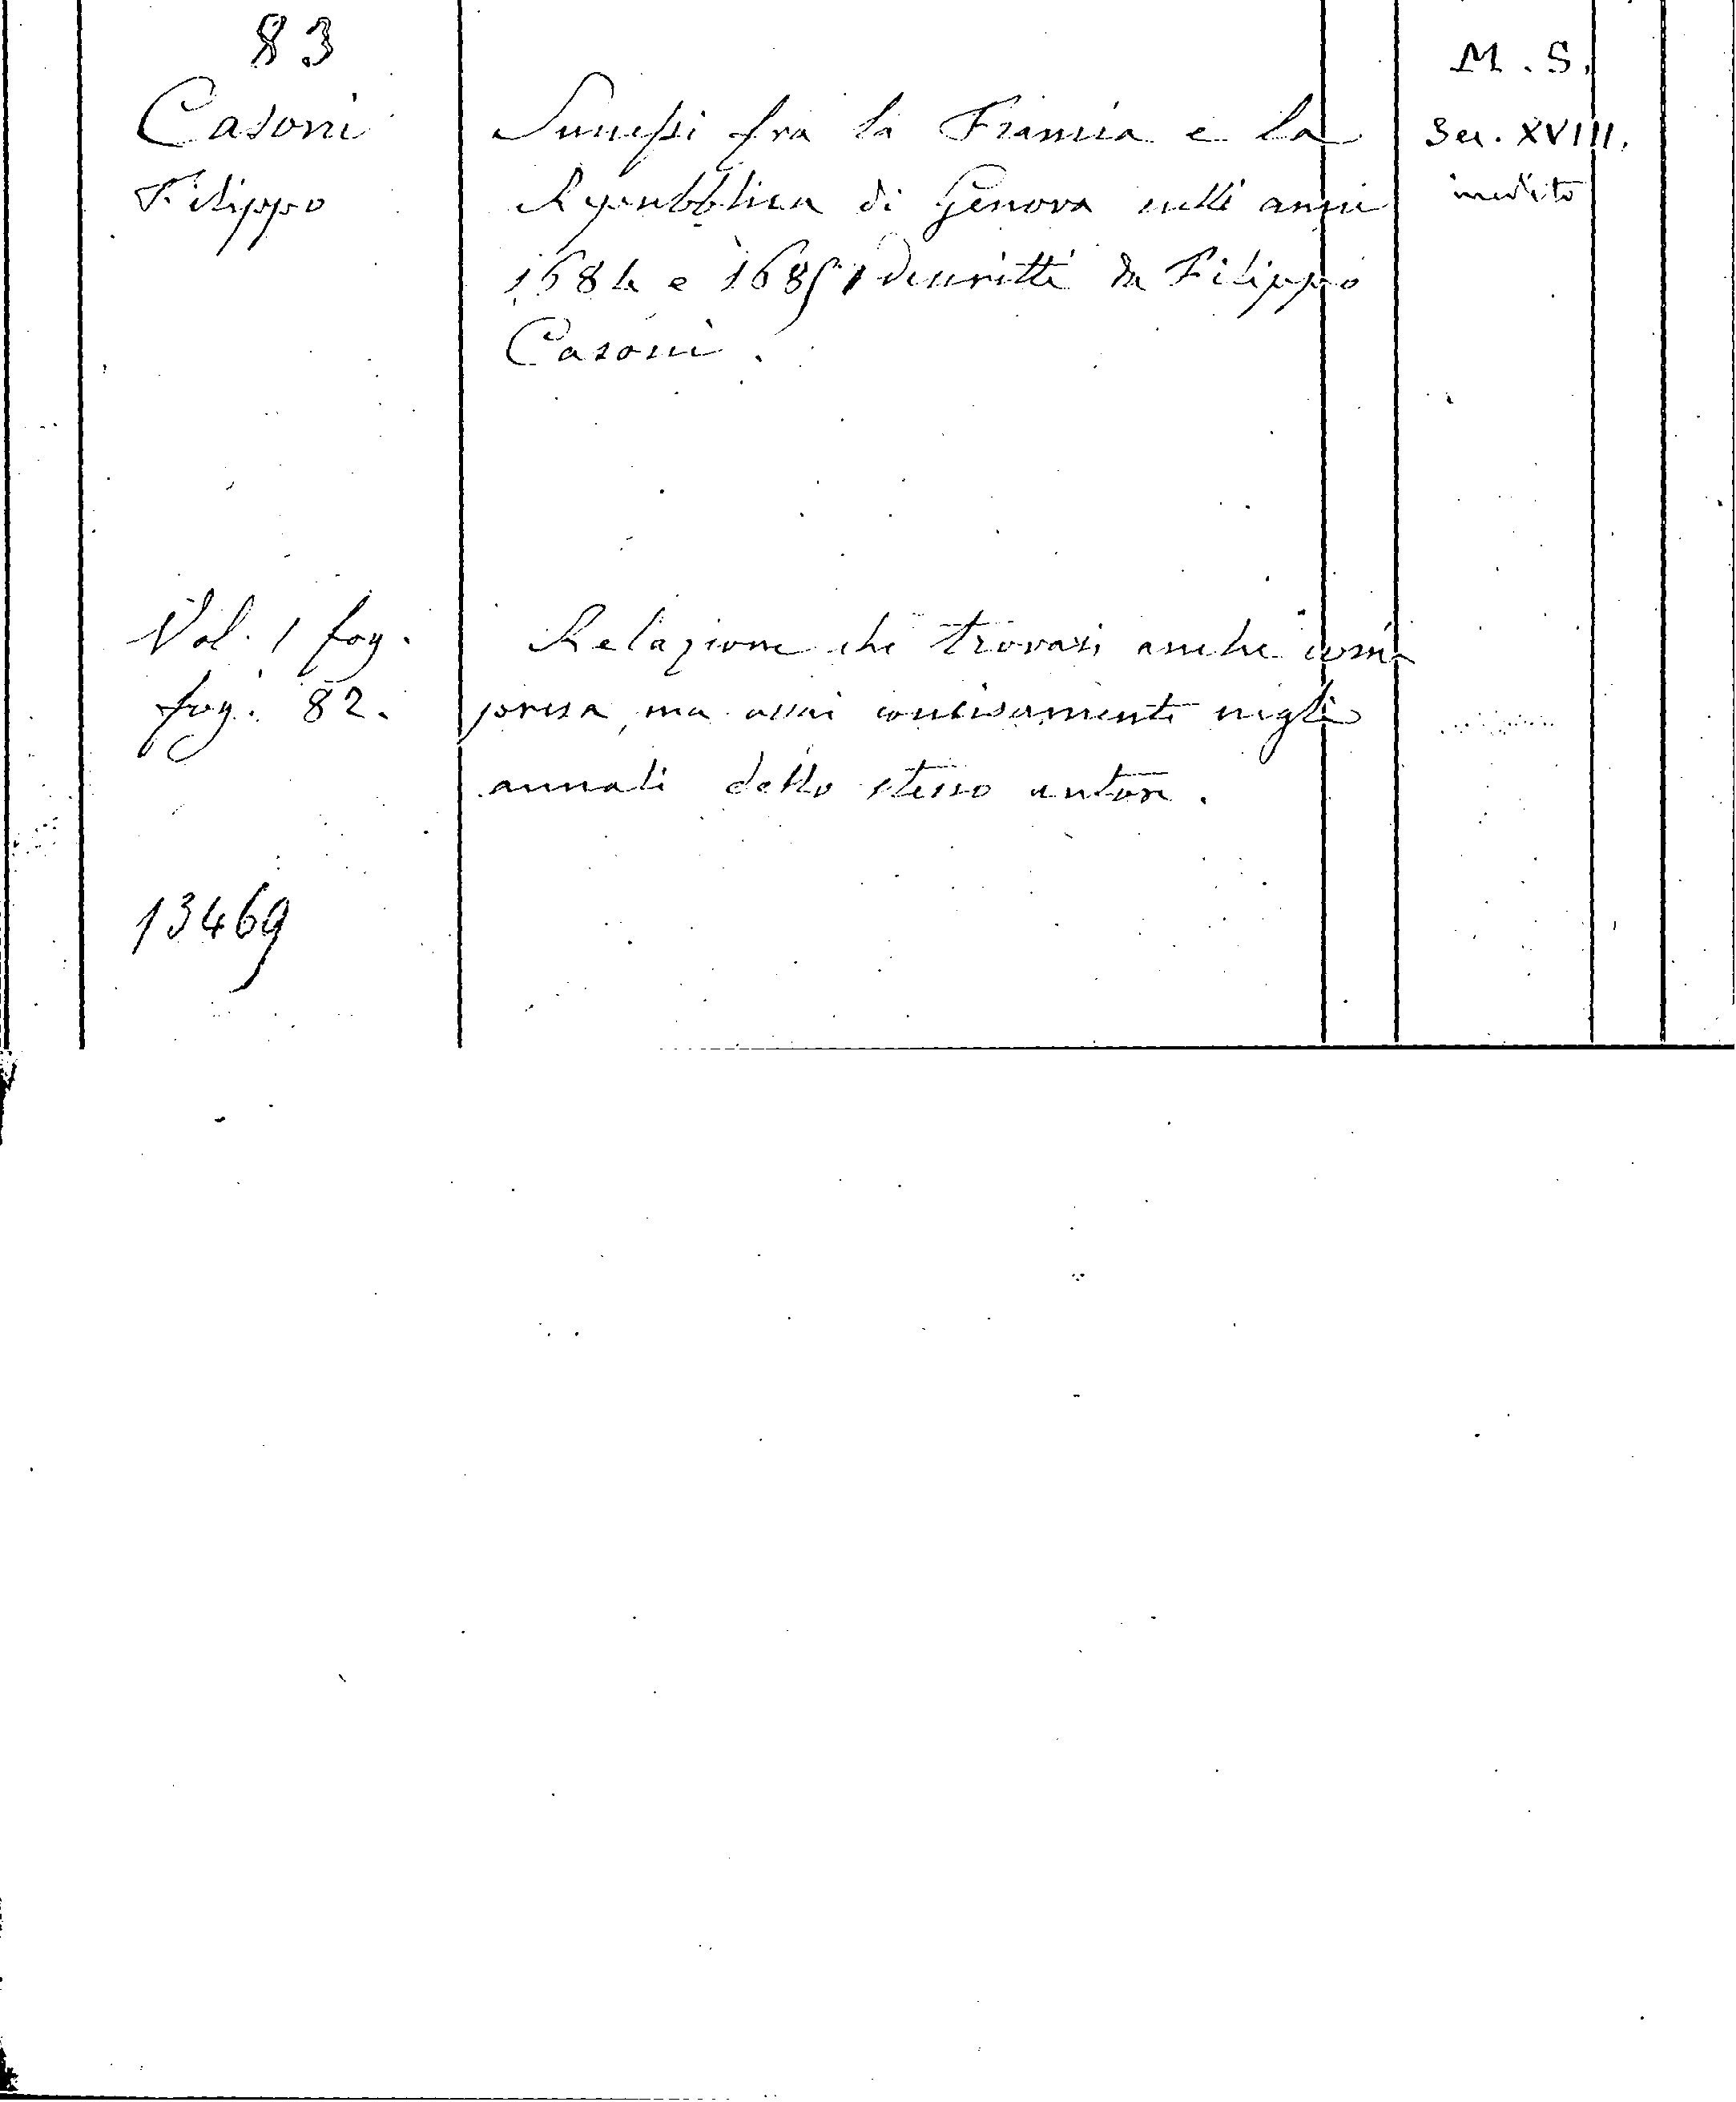 83
Casoni
Filippo
Successi fra la Francia e la
Repubblica di Genova nelli anni
1684 e 1685 descritti da Filippo
Casoni.
M. S.
Sec. XVIII.
inedito
Vol. 1 fog.
fog. 82.
Relazione che trovasi anche com-
presa, ma assai concisamente negli
annali dello stesso autore.
13469